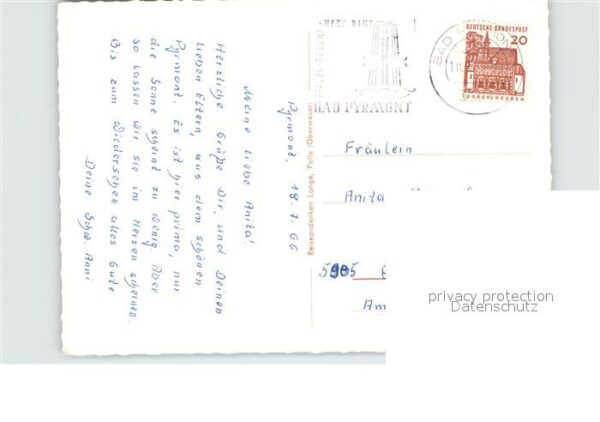 Pyrmont, 18.7.66
Meine liebe Anita!
Herzliche Grüße Dir, und Deinen
lieben Eltern, aus dem schönen
Pyrmont. Es ist hier prima, nur
die Sonne scheint zu wenig. Aber
so lassen wir sie im Herzen scheinen.
Bis zum Wiedersehen alles Gute
Deine Anni
Reiseandenken Lange, Polle (Oberweser)
BAD PYRMONT
BAD
DEUTSCHE BUNDESPOST
20
LORSCH/HESSEN
Fräulein
Anita
5905
Am
privacy protection
Datenschutz